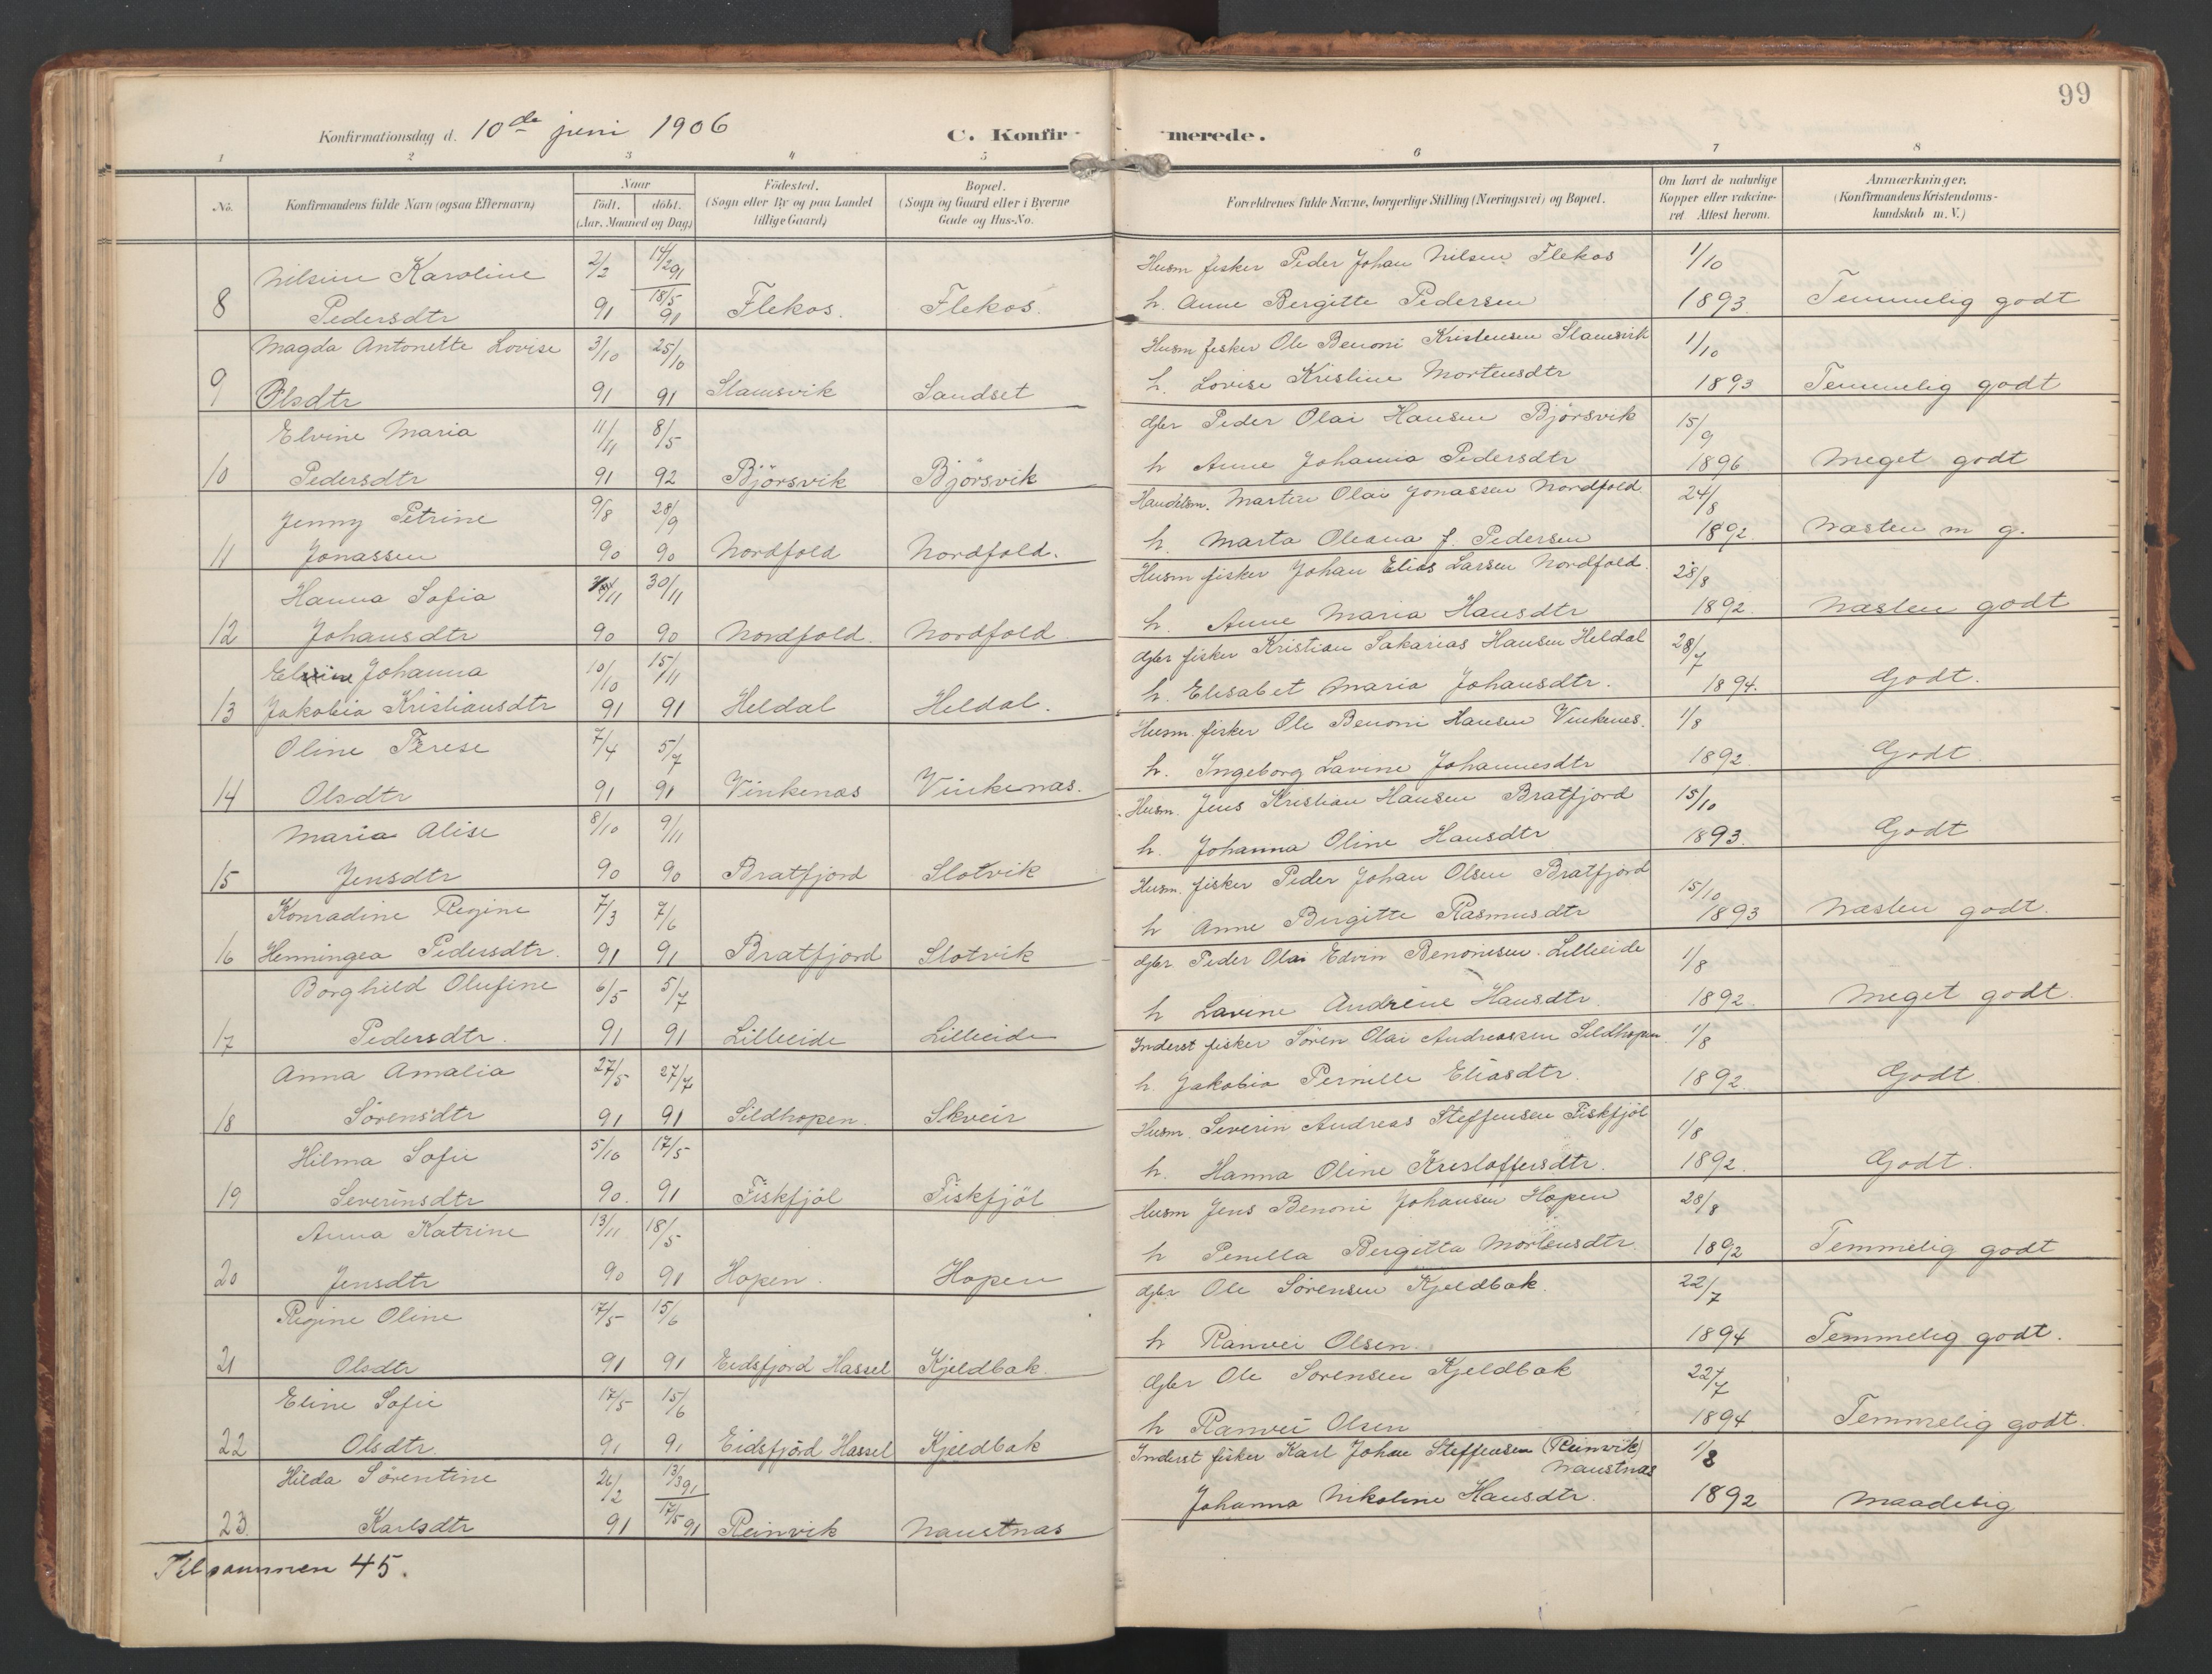 99
Konfirmationsdag d. 10de juni 1906
C. Konfirmerede.
1 2 3 4 5 6 7 8
No.
Konfirmandens fulde Navn (ogsaa Efternavn)
Naar
födt. döbt.
(Aar, Maaned og Dag)
Födested.
(Sogn eller By og paa Landet
tillige Gaard)
Bopæl.
(Sogn og Gaard eller i Byerne
Gade og Hus-No.
Forældrenes fulde Navne, borgerlige Stilling (Næringsvei) og Bopæl.
Om havt de naturlige
Kopper eller vakcine-
ret Attest herom.
Anmærkninger.
(Konfirmandens Kristendoms-
kundskab m. V.)
Nilsine Karoline 2/2 14/2 91 Husm fisker Peder Johan Nilsen Flekos 1/10
8 Pedersdtr 91 18/5 91 Flekos. Flekos. h. Anne Bergitte Pedersen 1893 Temmelig godt
Magda Antonette Lovise 3/10 25/10 Husm fisker Ole Benoni Kristensen Slamsvik 1/10
9 Olsdtr 91 91 Slamsvik Sandset h. Lovise Kristine Mortensdtr 1893 Temmelig godt
Elvine Maria 11/11 8/5 Gbr Peder Olai Hansen Björsvik 15/9
10 Pedersdtr 91 92 Björsvik Björsvik h Anne Johanna Pedersdtr 1896 Meget godt
Jenny Petrine 9/8 28/9 Handelsm. Martin Olai Jonassen Nordfold 24/8
11 Jonassen 90 90 Nordfold Nordfold. h. Marta Oleana f. Pedersen 1892 Næsten m g.
Hanna Sofia 30/11 Husm fisker Johan Elias Larsen Nordfold. 28/8
12 Johansdtr 90 90 Nordfold. Nordfold h. Anne Maria Hansdtr 1892. Næsten godt
Johanna 10/10 15/11 Gbr fisker Kristian Sakarias Hansen Heldal 28/7
13 Jakobia Kristiansdtr 91 91 Heldal Heldal. h. Elisabet Maria Johansdtr. 1894. Godt.
Oline Terese 7/4 5/7 Husm. fisker Ole Benoni Hansen Vinkenes. 1/8
14 Olsdtr 91 91 Vinkenæs Vinkenæs. h. Ingeborg Lavine Johannesdtr 1892 Godt.
Maria Alise 8/10 9/11 Husm. Jens Kristian Hansen Bratfjord 15/10
15 Jensdtr 90 90 Bratfjord Slotvik h. Johanna Oline Hansdtr 1893. Godt
Konradine Regine 7/3 7/6 Husm. fisker Peder Johan Olsen Bratfjord 15/10
16 Henningea Pedersdtr. 91 91 Bratfjord Slotvik h Anne Bergitte Rasmusdtr 1893 Næsten godt.
Borghild Olufine 6/5 5/7 Gbr. Peder Olai Edvin Benonisen. Lilleeide 1/8
17 Pedersdtr. 91 91 Lilleeide Lilleeide h Lavine Andrine Hansdtr. 1892. Meget godt.
Anna Amalia 27/5 27/7 Inderst fisker Sören Olai Andreassen Sildhopen 1/8
18 Sörensdtr 91 91 Sildhopen. Skveir h. Jakobia Pernille Eliasdtr. 1892. Godt
Hilma Sofie 5/10 17/5 Husm. Severin Andreas Steffensen Fiskfjöl 1/8
19 Severinsdtr 90. 91 Fiskfjöl Fiskfjöl h. Hanna Oline Kristoffersdtr. 1892. Godt.
Anna Katrine 13/11 18/5 Husm Jens Benoni Johansen Hopen 28/8
20 Jensdtr 90 91 Hopen. Hopen h Penilla Bergitta Mortensdtr 1892 Temmelig godt
Regine Oline 17/5 15/6 Gbr Ole Sörensen Kjeldbak. 22/7
21 Olsdtr 91 91 Eidsfjord Hassel Kjeldbak. h Ranvei Olsen. 1894 Temmelig godt.
Eline Sofie 17/5 15/6 Gbr Ole Sorensen Kjeldbak 22/7
22 Olsdtr. 91 91 Eidsfjord Hassel Kjeldbak h Ranvei Olsen 1894 Temmelig godt.
Hilda Sörentine 26/2 13/3 91 Inderst fisker Karl Johan Steffensen (Reinvik) 1/8
Naustnæs
23. Karlsdtr 91 17/5 91 Reinvik Naustnæs Johanna Nikoline Hansdtr. 1892 Maadelig
Tilsammen 45.